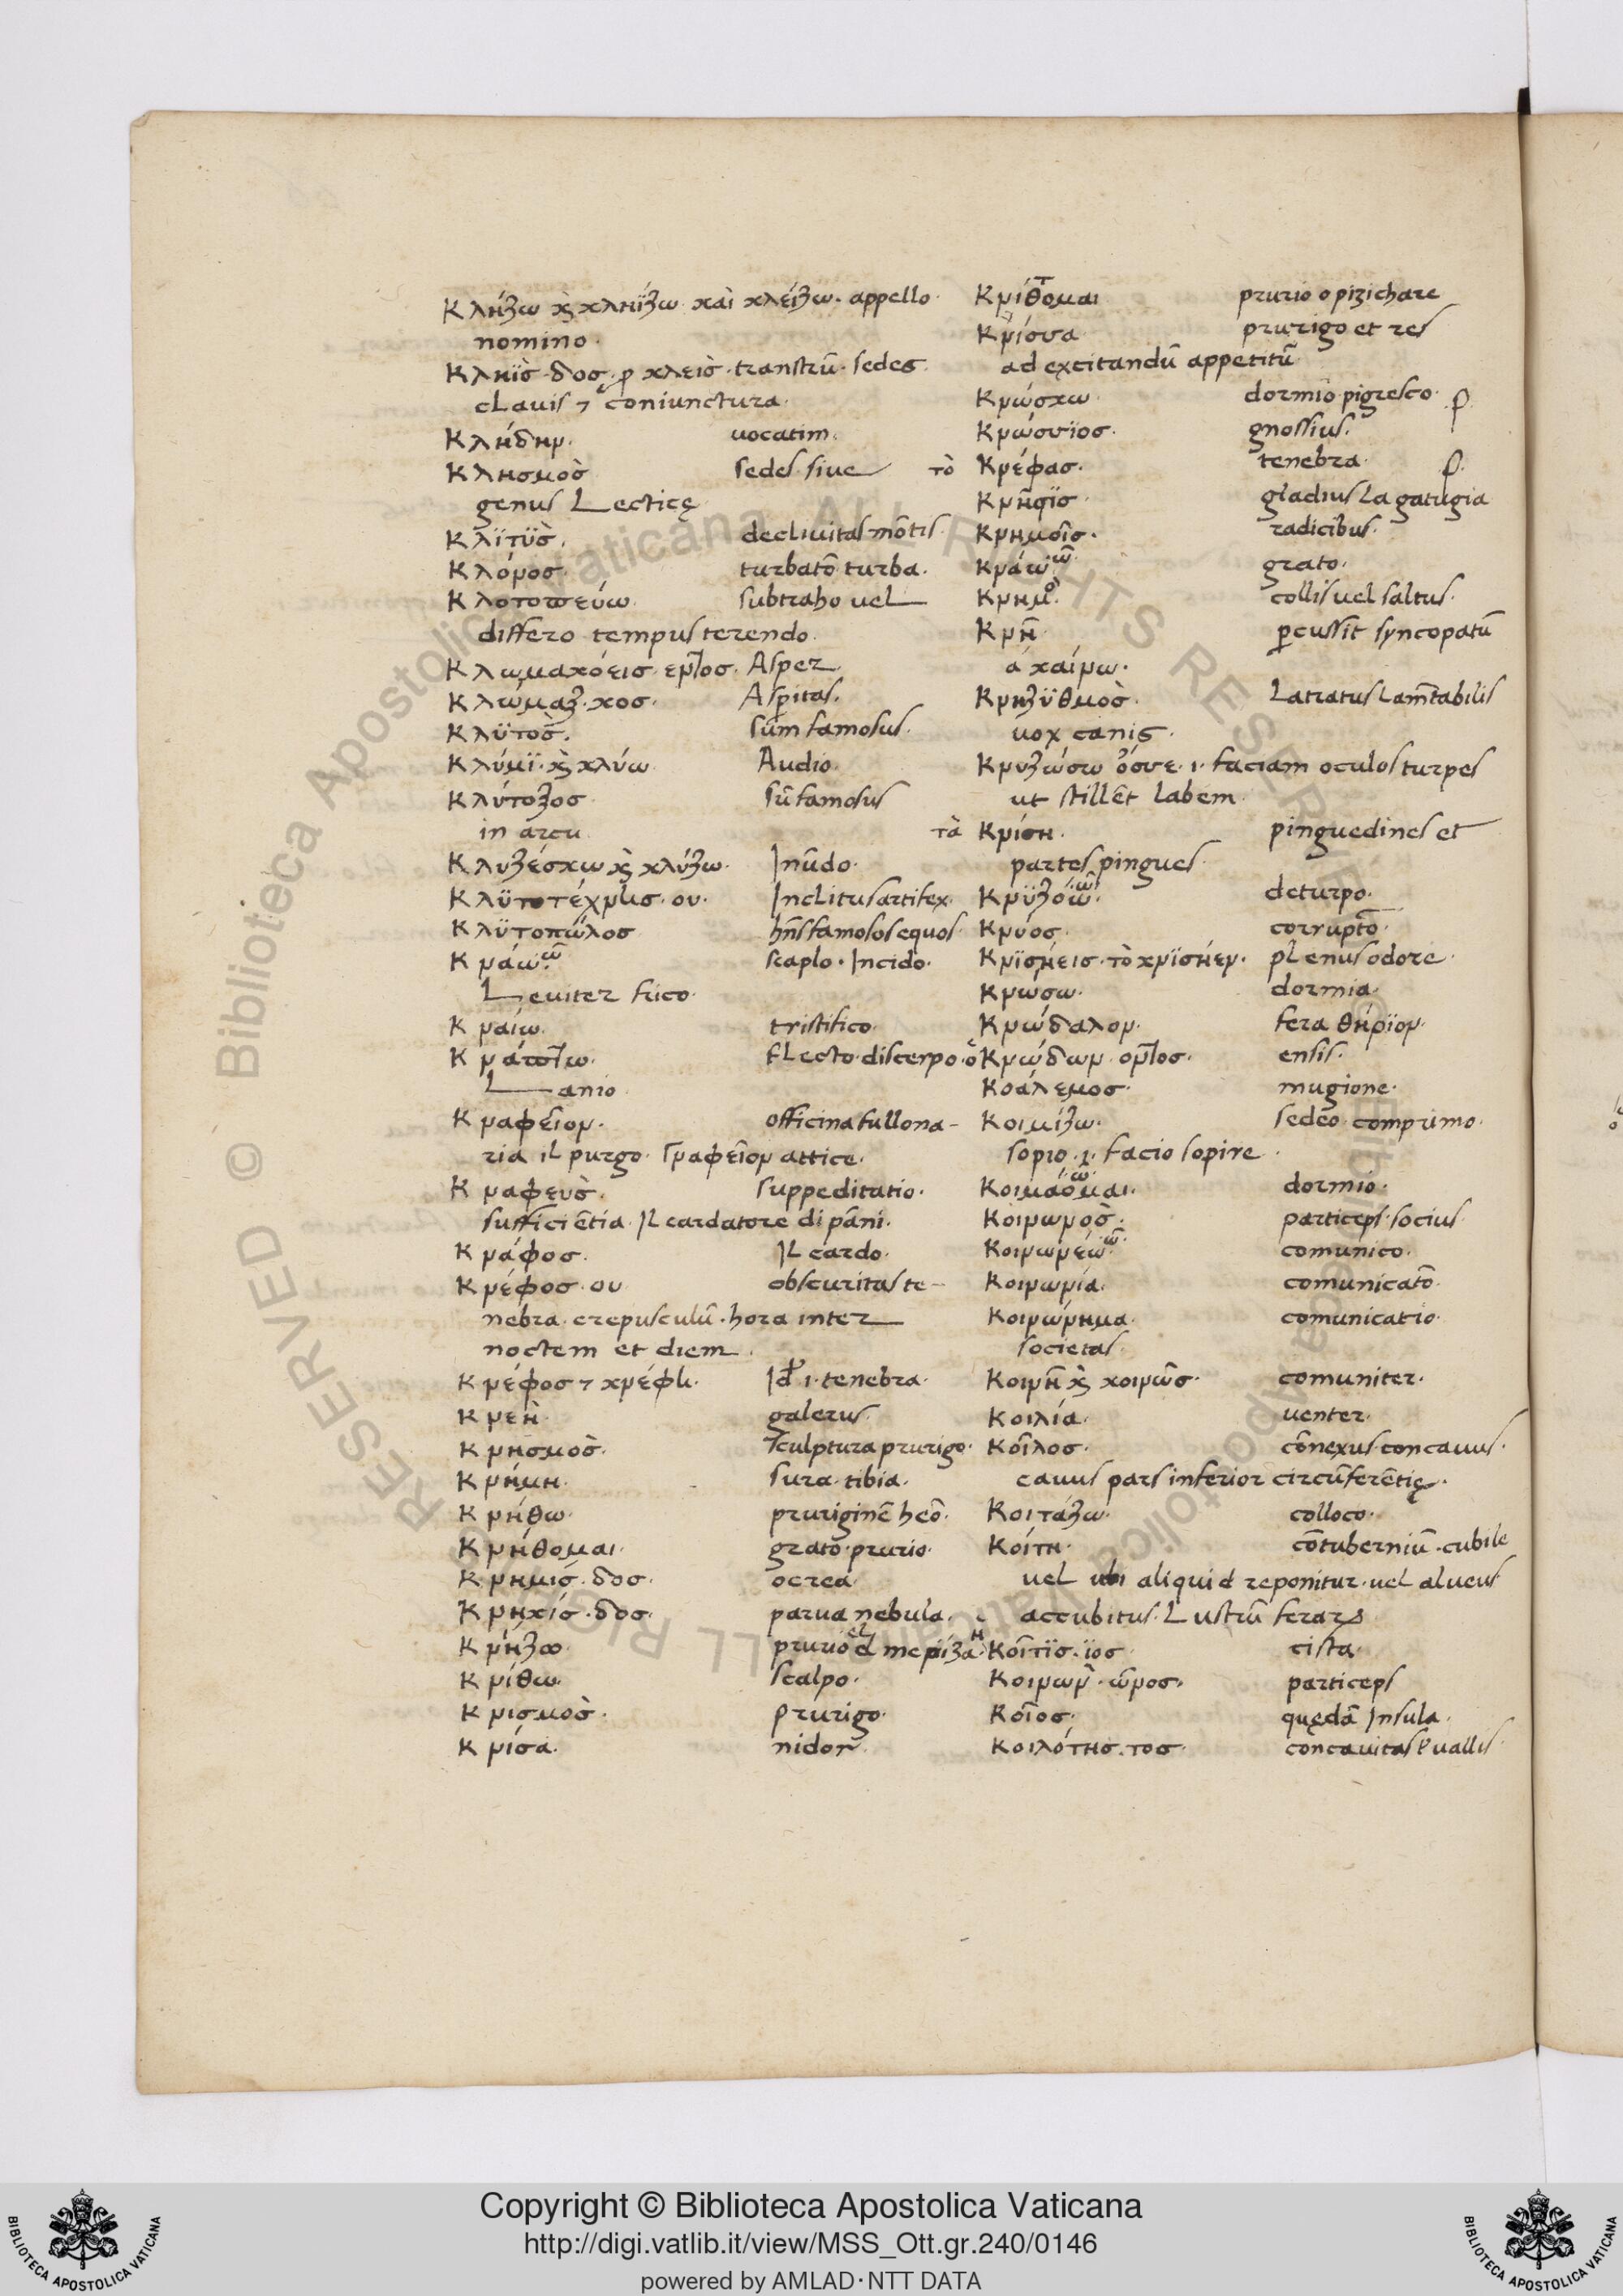 Κλήζω κὶ κληΐζω καὶ κλείζω. appello
nomino.
Κληῒς. δος. ρ κλεὶς. transtrū. sedes
clauis coniunctura.
Κλήδην. uocatim.
Κλησμὸς sedes siue
genus Lecticę
Κλϊτῢς. decliuitas mōtis
Κλόνος. turbatō turba.
Κλοτοπεύω. subtraho uel
differo tempus terendo.
Κλωμακόεις. εντος. Asper.
Κλώμαξ. κος. Aspitas.
Κλϋτος. sūm famosus.
Κλύμϊ. κὶ κλύω Audio.
Κλύτοξος sū famosus
in arcu
Κλυζέσκω κὶ κλύζω. Inūdo.
Κλϋτοτέχνης. ου. Inclitus artifex.
Κλϋτοπώλος hn̄s famosos equos.
Κνάω. ῶ scaplo. Incido.
Leuiter frico.
Κναίω. tristifico.
Κνάπτω. flecto. discerpo.
Lanio
Κναφεῖον. officina fullona-
ria il purgo. Γναφεῖον attice.
Κναφευς. suppeditatio.
sufficiētia. Il cardatore di pāni.
Κνάφος. Il cardo.
Κνέφος. ου obscuritas te-
nebra. crepusculū. hora inter
noctem et diem.
Κνέφος κνέφη. Id ı. tenebra.
Κνεὴ. galerus.
Κνησμὸς. sculptura prurigo.
Κνήμη. sura. tibia.
Κνήθω. pruriginē heō.
Κνήθομαι. grato. prurio.
Κνημίς. δος. ocrea.
Κνηκίς. δος. parua nebula.
Κνήζω. prurio
Κνίθω. scalpo.
Κνισμὸς. prurigo.
Κνίσα. nidor.
Κνίθομαι prurio o pizichare
Κνίσσα prurigo et res
ad excitandū appetitū
Κνώσκω dormio pigresco. ρ.
Κνώσσϊος. gnossius.
τὸ Κνέφας. tenebra. ρ.
Κνηστϊς. gladius La gatugia
Κνημοῖς. radicibus.
Κνάω. ῶ grato.
Κνημὸ. collis uel saltus.
Κνῆ percussit syncopatū
ἀ καίνω.
Κνηζϋθμὸς. Latratus Lamētabilis
uox canis.
Κνυζώσω ὄσσε. ı. faciam oculos turpes
ut stillēt labem
τὰ Κνίση. pinguedines et
partes pingues.
Κνϋζόω. ῶ deturpo.
Κνύος. corruptō.
Κνϊσήεις. τὸ κνϊσήεν. plenus odore.
Κνώσω. dormia.
Κνώδαλον. fera θήρϊον.
ὁ Κνώδων. οντος. ensis.
Κοάλεμος. mugione.
Κοιμίζω. sedeo. comprimo.
sopio. ı. facio sopire
Κοιμάομαι. ῶ dormio.
Κοινωνος. particeps. socius
Κοινωνέω. ῶ comunico.
Κοινωνία. comunicatō.
Κοινώνημα. comunicatio.
societas.
Κοινῆ κὶ κοινῶς. comuniter.
Κοιλία. uenter.
Κοῖλος. cōnexus concauus.
cauus pars inferior circūferētię.
Κοιτάζω. colloco.
Κοίτη. cōtuberniū. cubile
uel ubi aliquid reponitur. uel alueus
accubitus. Lustrū ferarꝝ
Κοῖτϊς. ϊος cista.
Κοινων. ῶνος. particeps
Κοῖος. quędā Insula.
Κοιλότης. τος. concauitas uallis.
Copyright © Biblioteca Apostolica Vaticana
http://digi.vatlib.it/view/MSS_Ott.gr.240/0146
powered by AMLAD·NTT DATA